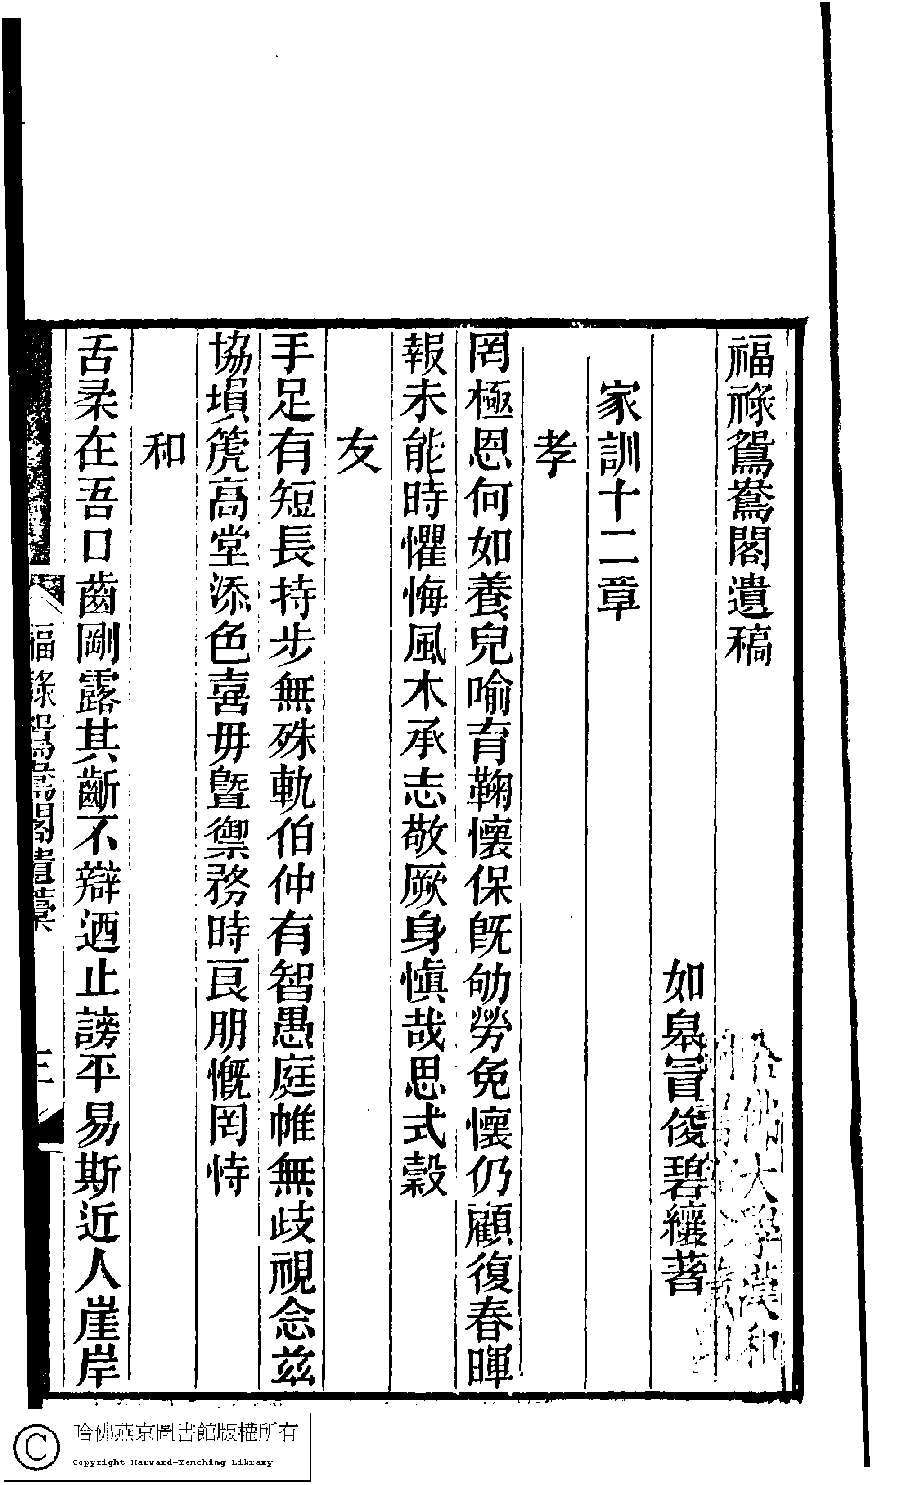 福祿鴛鴦閣遺稿
如臯冒俊碧纕著
家訓十二章
孝
罔極恩何如養兒喻育鞠懷保旣劬勞免懷仍顧復春暉
報未能時懼悔風木承志敬厥身愼哉思式穀
友
手足有短長持步無殊軌伯仲有智愚庭帷無歧視念兹
協塤箎高堂添色喜毋曁禦務時良朋慨罔恃
和
舌柔在吾口齒剛露其齗不辯迺止謗平易斯近人崖岸
福祿鴛鴦閣遺藁
三
哈佛大學漢和
哈佛燕京圖書館版權所有
Copyright Harvard-Yenching Library